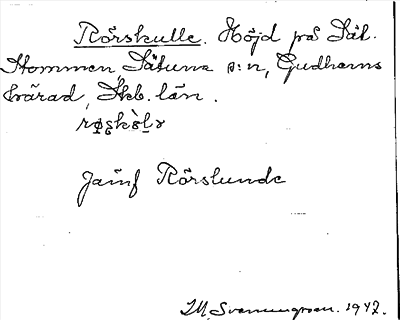 Rörskulle. Höjd på Sät.
Stommen Sätuna s:n, Gudhems
härad, Skb. län.
Jämf Rörslunde
M. Svanungsson. 1942.